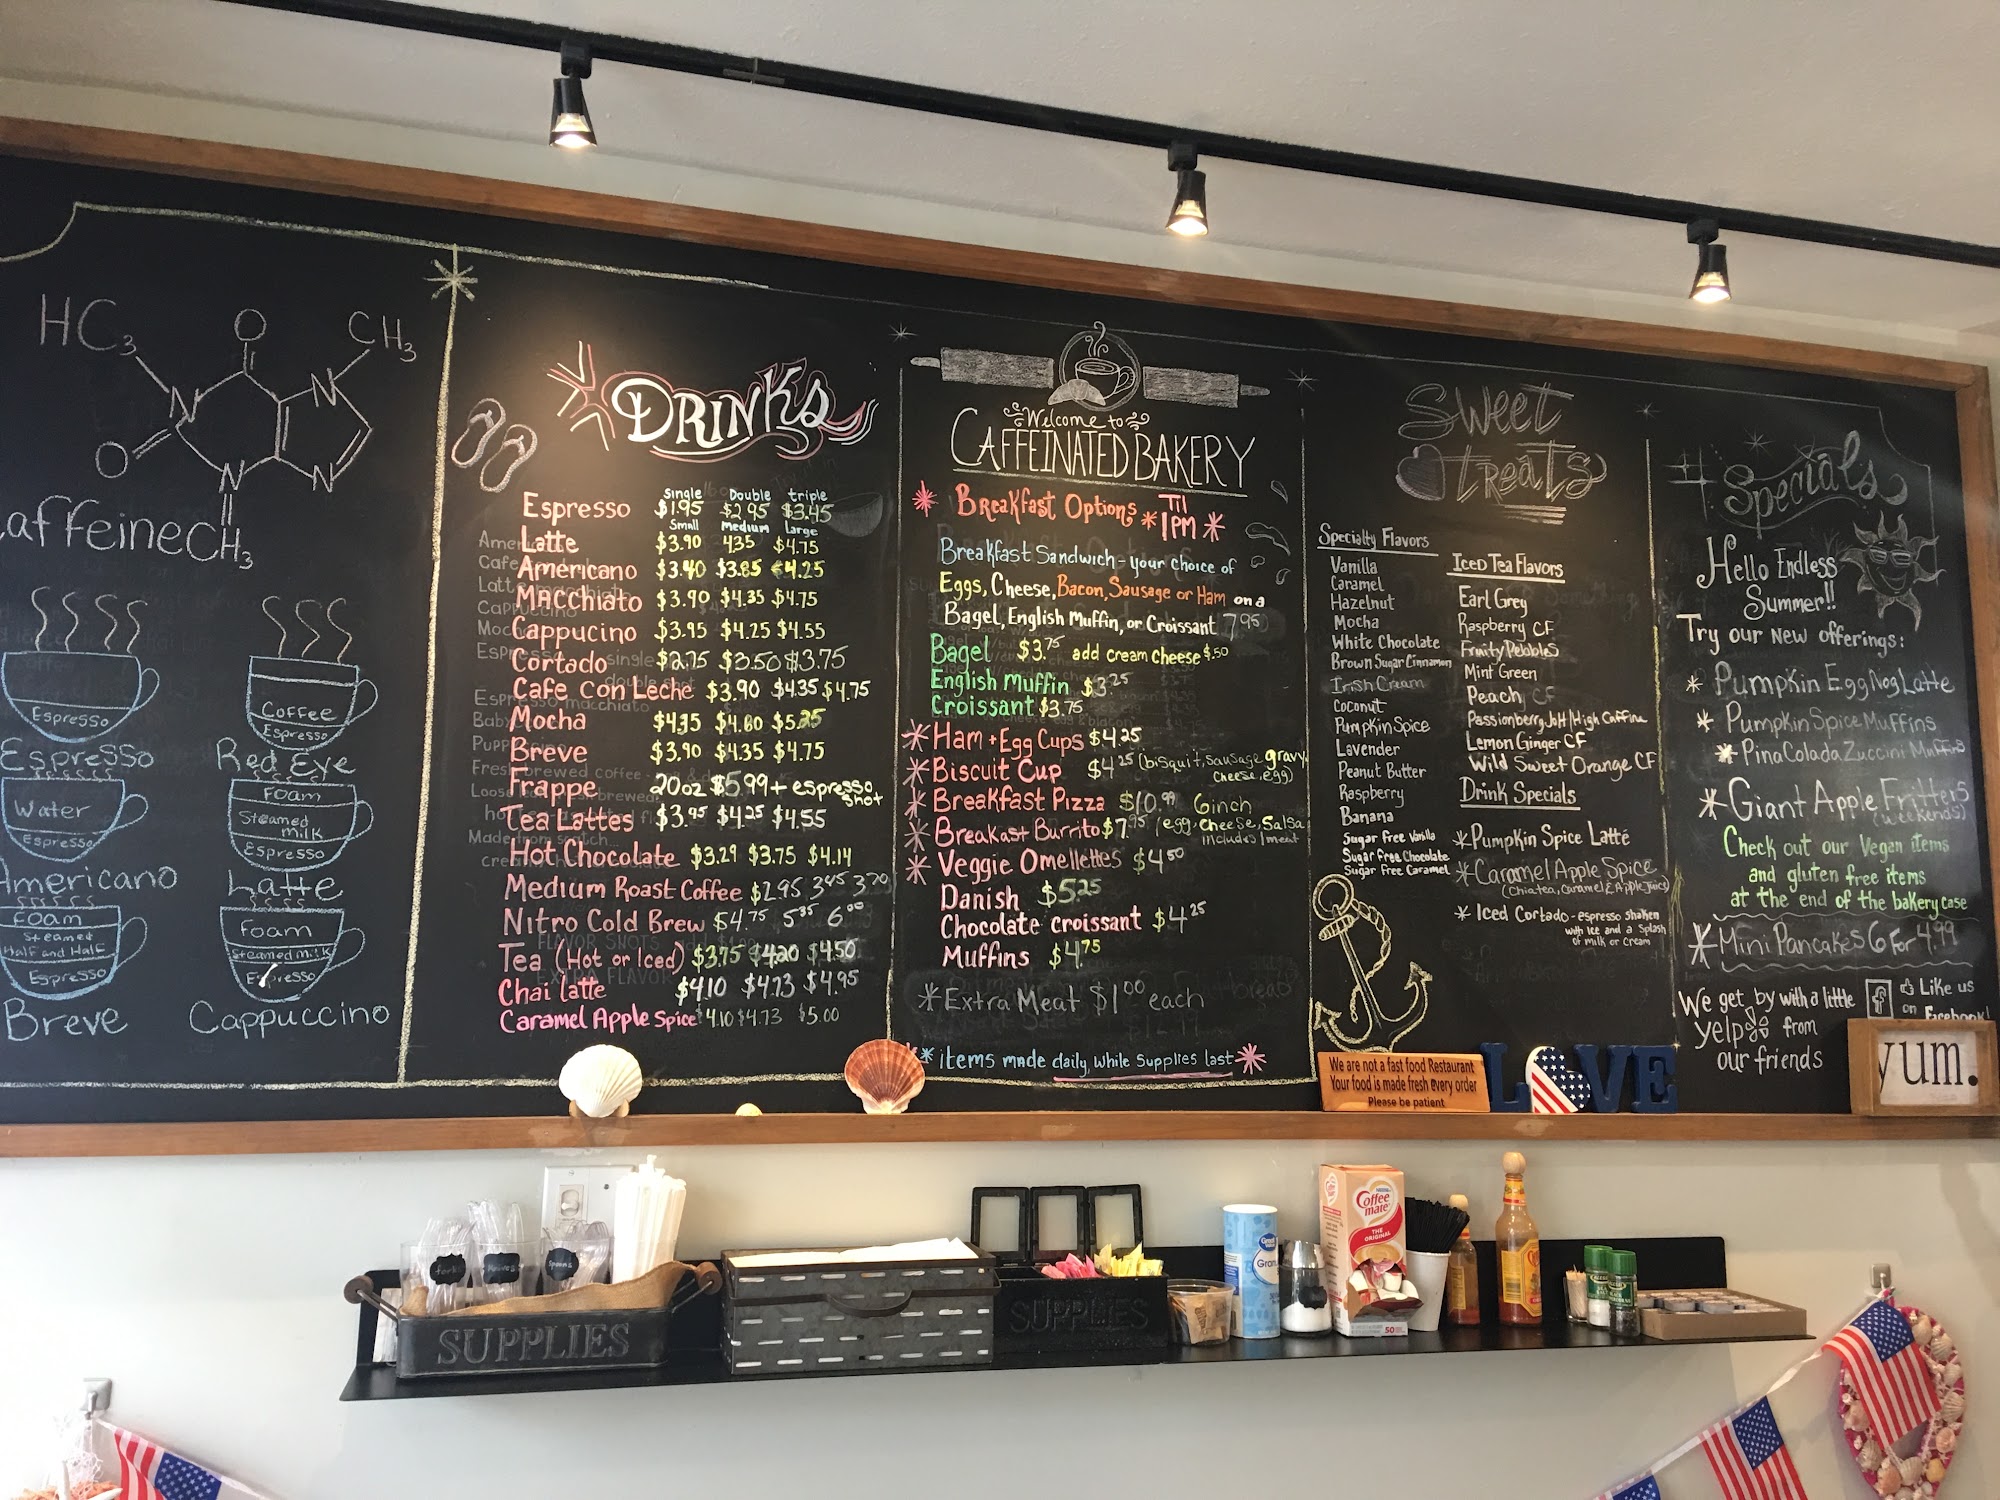 HC3
O
CH3
N
N
O
N
N
affeine
CH3
Espresso
Espresso
Coffee
Espresso
Red Eye
Water
Espresso
Americano
Foam
Steamed
milk
Espresso
Latte
Foam
Steamed
Half and Half
Espresso
Breve
Foam
Steamed milk
Espresso
Cappuccino
DRINKS
Single Double triple
Espresso $1.95 $2.95 $3.45
Small Medium Large
Latte $3.90 4.35 $4.75
Americano $3.40 $3.85 $4.25
Macchiato $3.90 $4.35 $4.75
Cappucino $3.95 $4.25 $4.55
Cortado $2.75 $3.50 $3.75
Cafe con Leche $3.90 $4.35 $4.75
Mocha $4.35 $4.80 $5.25
Breve $3.90 $4.35 $4.75
Frappe 20oz $5.99 + espresso shot
Tea Lattes $3.95 $4.25 $4.55
Hot Chocolate $3.29 $3.75 $4.14
Medium Roast Coffee $2.95 3.45 3.70
Nitro Cold Brew $4.75 5.35 6.00
Tea (Hot or Iced) $3.75 $4.20 $4.50
Chai latte $4.10 $4.73 $4.95
Caramel Apple Spice $4.10 $4.73 $5.00
Welcome to
CAFFEINATED BAKERY
Breakfast Options * Til 1PM *
Breakfast Sandwich - your choice of
Eggs, Cheese, Bacon, Sausage or Ham on a
Bagel, English Muffin, or Croissant 7.95
Bagel $3.75 add cream cheese $.50
English Muffin $3.25
Croissant $3.75
* Ham + Egg Cups $4.25
* Biscuit Cup $4.25 (bisquit, sausage gravy, cheese, egg)
* Breakfast Pizza $10.99 6inch
* Breakast Burrito $7.95 (egg, cheese, Salsa
includes 1 meat
* Veggie Omellettes $4.50
Danish $5.25
Chocolate croissant $4.25
Muffins $4.75
* Extra Meat $1.00 each
** items made daily, while supplies last *
Sweet
Treats
Specialty Flavors
Vanilla
Caramel
Hazelnut
Mocha
White Chocolate
Brown Sugar Cinnamon
Irish Cream
Coconut
Pumpkin Spice
Lavender
Peanut Butter
Raspberry
Banana
Sugar Free Vanilla
Sugar Free Chocolate
Sugar Free Caramel
Iced Tea Flavors
Earl Grey
Raspberry CF
Fruity Pebbles
Mint Green
Peach CF
Passionberry Jolt/High Caffine
Lemon Ginger CF
Wild Sweet Orange CF
Drink Specials
* Pumpkin Spice Latté
* Caramel Apple Spice
(Chiatea, Caramel & Apple Juice)
* Iced Cortado - espresso shaken
with ice and a splash
of milk or cream
Specials
Hello Endless
Summer!!
Try our new offerings:
* Pumpkin Egg Nog Latte
* Pumpkin Spice Muffins
* Pina Colada Zuccini Muffins
* Giant Apple Fritters
(weekends)
Check out our Vegan items
and gluten free items
at the end of the bakery case
* Mini Pancakes 6 for 4.99
We get by with a little
yelp from
our friends
f Like us
on Facebook!
We are not a fast food Restaurant
Your food is made fresh every order
Please be patient
LOVE
yum.
forks
Knives
Spoons
SUPPLIES
SUPPLIES
Great Value
Gran
Coffee
mate
THE
ORIGINAL
50